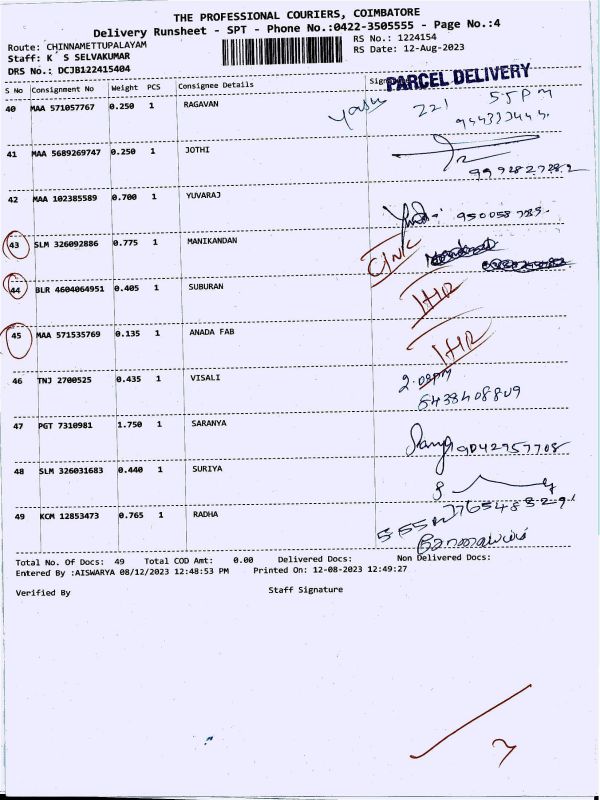 THE PROFESSIONAL COURIERS, COIMBATORE
Delivery Runsheet - SPT - Phone No.:0422-3505555 - Page No.:4
Route: CHINNAMETTUPALAYAM
RS No.: 1224154
Staff: K S SELVAKUMAR
RS Date: 12-Aug-2023
DRS No.: DCJB122415404
PARCEL DELIVERY
S No Consignment No Weight PCS Consignee Details
40 MAA 571057767 0.250 1 RAGAVAN
221
41 MAA 5689269747 0.250 1 JOTHI
42 MAA 102385589 0.700 1 YUVARAJ
43 SLM 326092886 0.775 1 MANIKANDAN
44 BLR 4604064951 0.405 1 SUBURAN
IHR
45 MAA 571535769 0.135 1 ANADA FAB
IHR
46 TNJ 2700525 0.435 1 VISALI
47 PGT 7310981 1.750 1 SARANYA
9042957708
48 SLM 326031683 0.440 1 SURIYA
49 KCM 12853473 0.765 1 RADHA
Total No. Of Docs: 49 Total COD Amt: 0.00 Delivered Docs: Non Delivered Docs:
Entered By :AISWARYA 08/12/2023 12:48:53 PM Printed On: 12-08-2023 12:49:27
Verified By Staff Signature